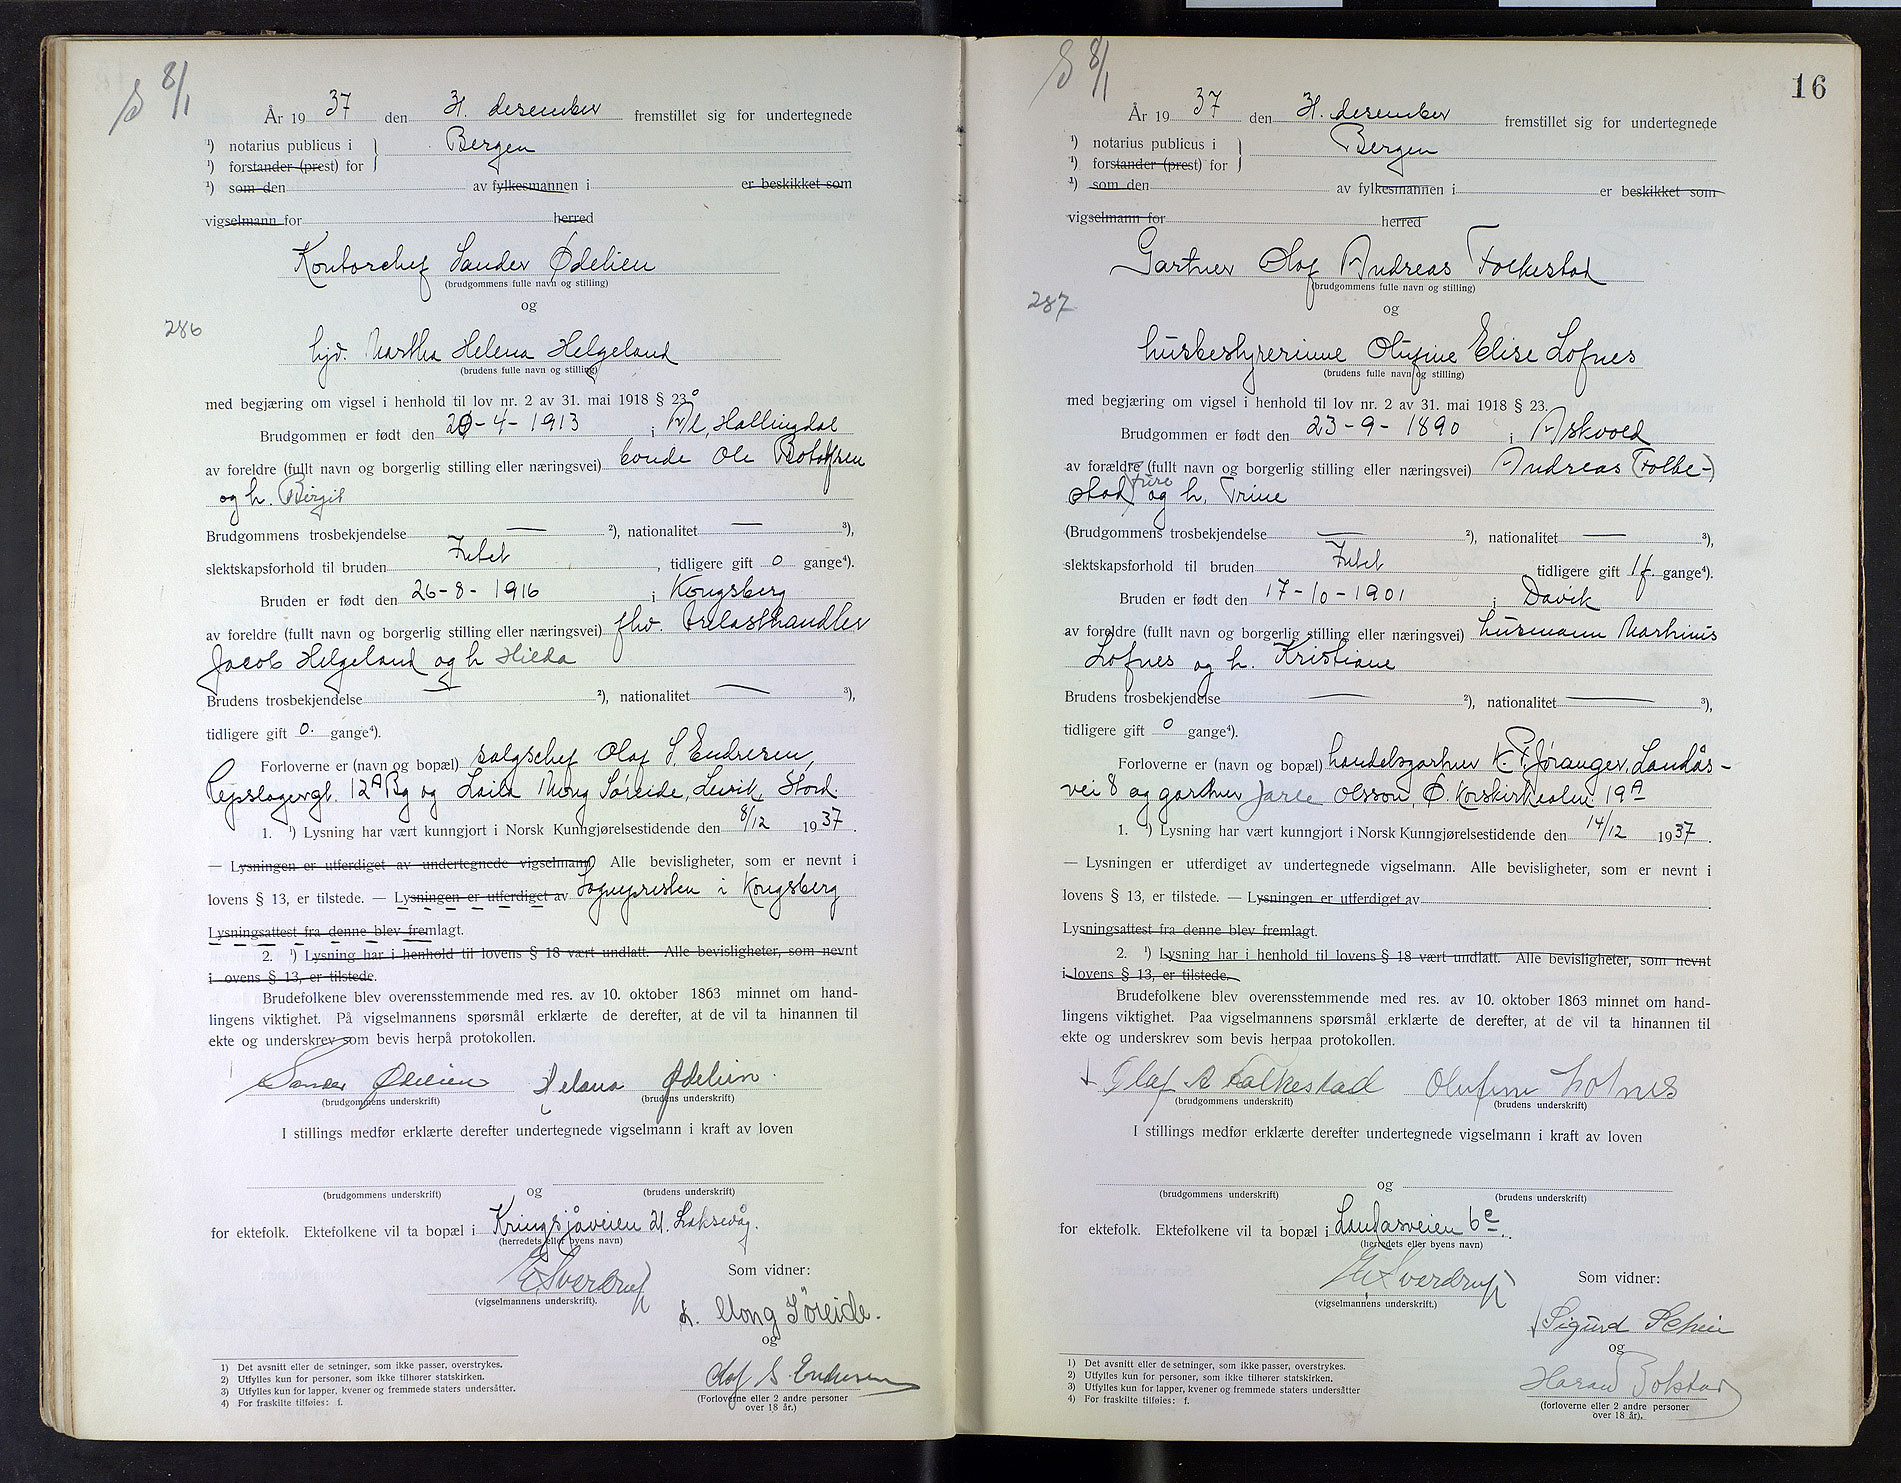 S 8/1
År 19 37 den 31. desember fremstillet sig for undertegnede
¹) notarius publicus i
¹) forstander (prest) for } Bergen
¹) som den av fylkesmannen i er beskikket som
vigselmann for herred
Kontorchef Sander Ødelien
(brudgommens fulle navn og stilling)
og
286
Martha Helena Helgeland
(brudens fulle navn og stilling)
med begjæring om vigsel i henhold til lov nr. 2 av 31. mai 1918 § 23.
Brudgommen er født den 20-4-1913 i Ål, Hallingdal
av foreldre (fullt navn og borgerlig stilling eller næringsvei) bonde Ole
og h. Birgit
Brudgommens trosbekjendelse — ²), nationalitet — ³),
slektskapsforhold til bruden Intet, tidligere gift 0 gange⁴).
Bruden er født den 26-8-1916 i Kongsberg
av foreldre (fullt navn og borgerlig stilling eller næringsvei) fhv. trelasthandler
Jacob Helgeland og h Hilda
Brudens trosbekjendelse — ²), nationalitet — ³),
tidligere gift 0. gange⁴).
Forloverne er (navn og bopæl) salgschef Olaf S. Endresen,
Repslagergt. 12 A Bg og Laila Mong Søreide, Lervik, Stord
1. ¹) Lysning har vært kunngjort i Norsk Kunngjørelsestidende den 8/12 1937.
— Lysningen er utferdiget av undertegnede vigselmann) Alle bevisligheter, som er nevnt i
lovens § 13, er tilstede. — Lysningen er utferdiget av Sognepresten i Kongsberg
Lysningsattest fra denne blev fremlagt.
2. ¹) Lysning har i henhold til lovens § 18 vært undlatt. Alle bevisligheter, som nevnt
i ovens § 13, er tilstede.
Brudefolkene blev overensstemmende med res. av 10. oktober 1863 minnet om hand-
lingens viktighet. På vigselmannens spørsmål erklærte de derefter, at de vil ta hinannen til
ekte og underskrev som bevis herpå protokollen.
Sander Ødelien Helena Ødelien.
(brudgommens underskrift) (brudens underskrift)
I stillings medfør erklærte derefter undertegnede vigselmann i kraft av loven
og
(brudgommens underskrift) (brudens underskrift)
for ektefolk. Ektefolkene vil ta bopæl i Kringsjåveien 21. Laksevåg.
(herredets eller byens navn)
E Sverdrup
(vigselmannens underskrift).
Som vidner:
L. Mong Søreide.
og
Olaf S. Endresen
(Forloverne eller 2 andre personer
over 18 år.)
1) Det avsnitt eller de setninger, som ikke passer, overstrykes.
2) Utfylles kun for personer, som ikke tilhører statskirken.
3) Utfylles kun for lapper, kvener og fremmede staters undersåtter.
4) For fraskilte tilføies: f.
S 8/1
16
År 19 37 den 31. desember fremstillet sig for undertegnede
¹) notarius publicus i
¹) forstander (prest) for } Bergen
¹) som den av fylkesmannen i er beskikket som
vigselmann for herred
Gartner Olaf Andreas Folkestad
(brudgommens fulle navn og stilling)
og
287
husbestyrerinne Olufine Elise Lofnes
(brudens fulle navn og stilling)
med begjæring om vigsel i henhold til lov nr. 2 av 31. mai 1918 § 23.
Brudgommen er født den 23-9-1890 i Askvold
av forældre (fullt navn og borgerlig stilling eller næringsvei) Andreas (Folke-)
stad) Fure og h. Trine
(Brudgommens trosbekjendelse — ²), nationalitet — ³),
slektskapsforhold til bruden Intet tidligere gift 1 f. gange⁴).
Bruden er født den 17-10-1901 i Davik
av foreldre (fullt navn og borgerlig stilling eller næringsvei) husmann Marthinus
Lofnes og h. Kristiane
Brudens trosbekjendelse — ²), nationalitet — ³),
tidligere gift 0 gange⁴).
Forloverne er (navn og bopæl) handelsgartner K. P. Jøranger, Landås-
vei 8 og gartner Jarle Olsson, Ø. Korskirkealm. 19 A
1. ¹) Lysning har vært kunngjort i Norsk Kunngjørelsestidende den 14/12 1937.
— Lysningen er utferdiget av undertegnede vigselmann. Alle bevisligheter, som er nevnt i
lovens § 13, er tilstede. — Lysningen er utferdiget av
Lysningsattest fra denne blev fremlagt.
2. ¹) Lysning har i henhold til lovens § 18 vært undlatt. Alle bevisligheter, som nevnt
i lovens § 13, er tilstede.
Brudefolkene blev overensstemmende med res. av 10. oktober 1863 minnet om hand-
lingens viktighet. Paa vigselmannens spørsmål erklærte de derefter, at de vil ta hinannen til
ekte og underskrev som bevis herpaa protokollen.
Olaf A Folkestad Olufine Lofnes
(brudgommens underskrift) (brudens underskrift)
I stillings medfør erklærte derefter undertegnede vigselmann i kraft av loven
og
(brudgommens underskrift) (brudens underskrift)
for ektefolk. Ektefolkene vil ta bopæl i Landåsveien 6 c.
(herredets eller byens navn)
E Sverdrup
(vigselmannens underskrift.)
Som vidner:
Sigurd
og
(forloverne eller 2 andre personer
over 18 år).
1) Det avsnitt eller de setninger, som ikke passer, overstrykes.
2) Utfylles kun for personer, som ikke tilhører statskirken.
3) Utfylles kun for lapper, kvener og fremmede staters undersåtter
4) For fraskilte tilføies: f.